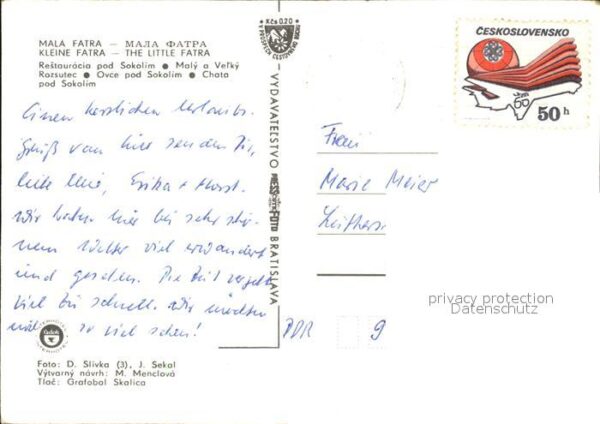 MALÁ FATRA — МАЛА ФАТРА
KLEINE FATRA — THE LITTLE FATRA
Reštaurácia pod Sokolím ● Malý a Veľký
Rozsutec ● Ovce pod Sokolím ● Chata
pod Sokolím
Einen herzlichen Urlaubs-
gruß von hier senden Dir,
liebe Erika + Horst.
Wir haben hier bei sehr schö-
nem Wetter viel erwandert
und gesehen. Die Zeit vergeht
viel zu schnell. Wir möchten
so viel sehen!
Foto: D. Slivka (3), J. Sekal
Výtvarný návrh: M. Menclová
Tlač: Grafobal Skalica
Kčs 0,20
VYDAVATEĽSTVO
FOTO
BRATISLAVA
ČESKOSLOVENSKO
60
50 h
Frau
Marie Meier
DDR 9
privacy protection
Datenschutz